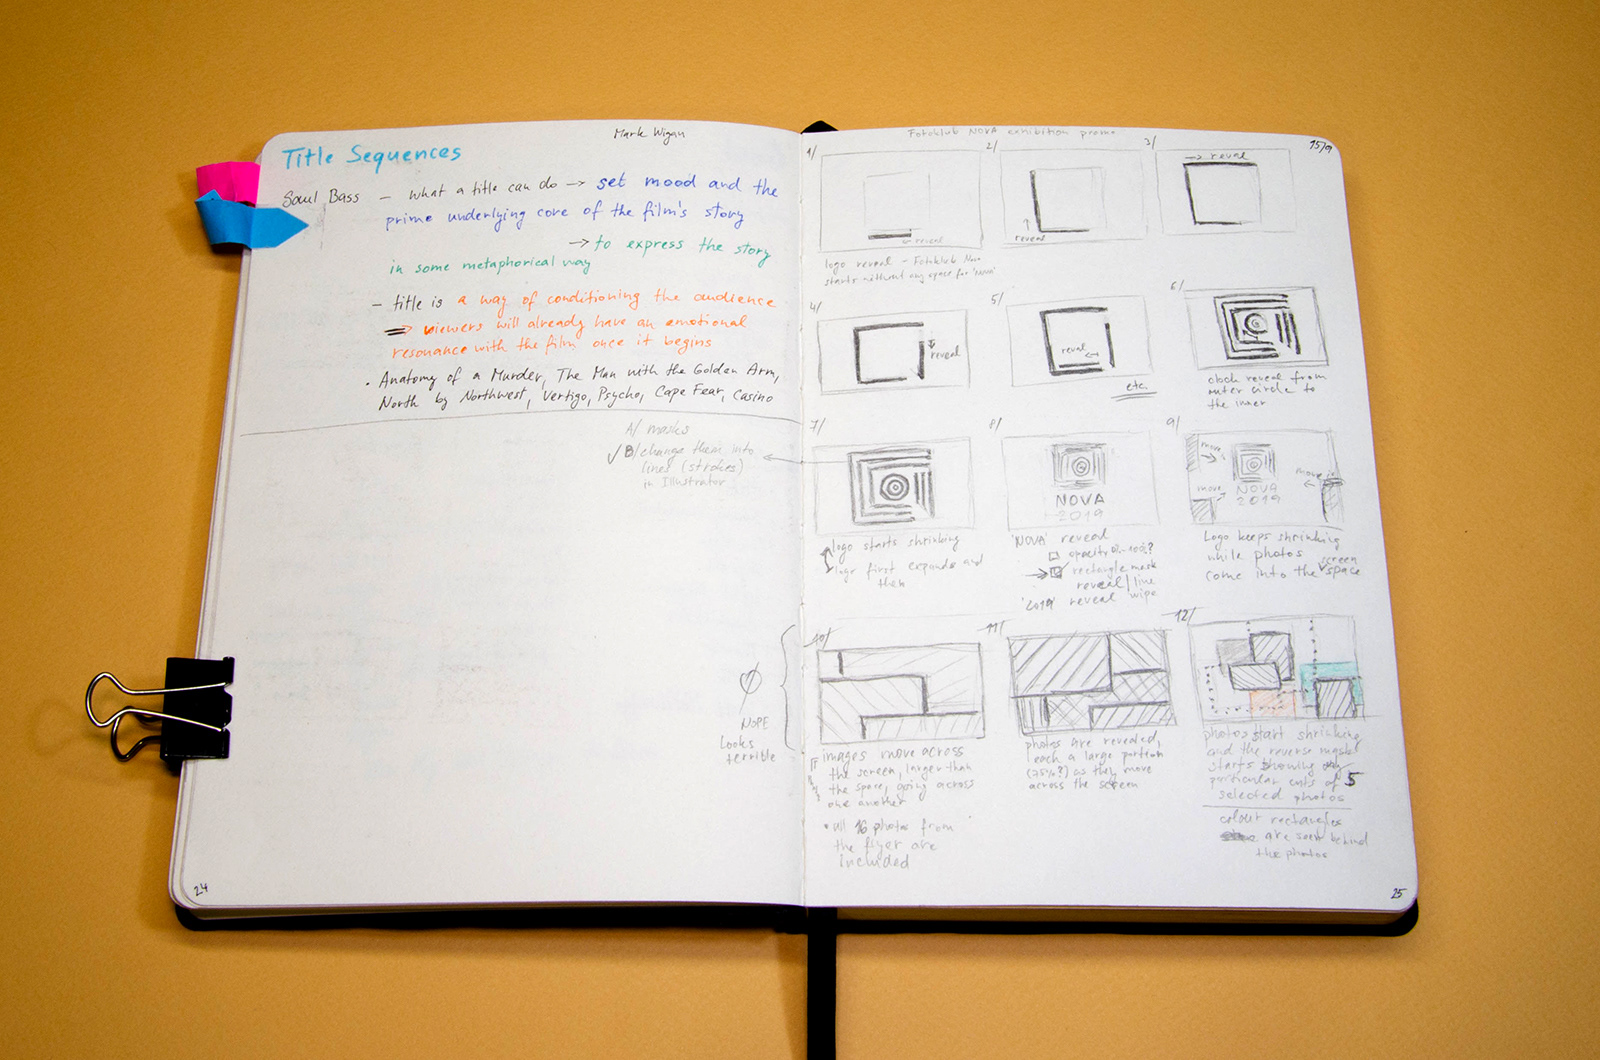 Mark Wigan
Title Sequences
Saul Bass – what a title can do → set mood and the
prime underlying core of the film's story
→ to express the story
in some metaphorical way
– title is a way of conditioning the audience
⇒ viewers will already have an emotional
resonance with the film once it begins
• Anatomy of a Murder, The Man with the Golden Arm,
North by Northwest, Vertigo, Psycho, Cape Fear, Casino
A/ masks
✓ B/ change them into
lines (strokes)
in Illustrator
NOPE
Looks
terrible
24
Fotoklub NOVA exhibition promo
15/9
1/
← reveal
logo reveal – Fotoklub Nova
starts without any space for 'NOVA'
2/
↑
reveal
3/
→ reveal
4/
↓
reveal
5/
reveal
←
etc.
6/
clock reveal from
outer circle to
the inner
7/
logo starts shrinking
logo first expands and
then
8/
NOVA
2019
'NOVA' reveal
opacity 0%-100%?
→ rectangle mask
reveal / line
'2019' reveal wipe
9/
move in
→
move
NOVA
2019
move in
←
Logo keeps shrinking
while photos
come into the screen space
10/
images move across
the screen, larger than
the space, going across
one another
• all 16 photos from
the flyer are
included
11/
photos are revealed,
each a large portion
(75%?) as they move
across the screen
12/
photos start shrinking
and the reverse mask
starts showing
particular cuts of 5
selected photos
colour rectangles
are seen behind
the photos
25